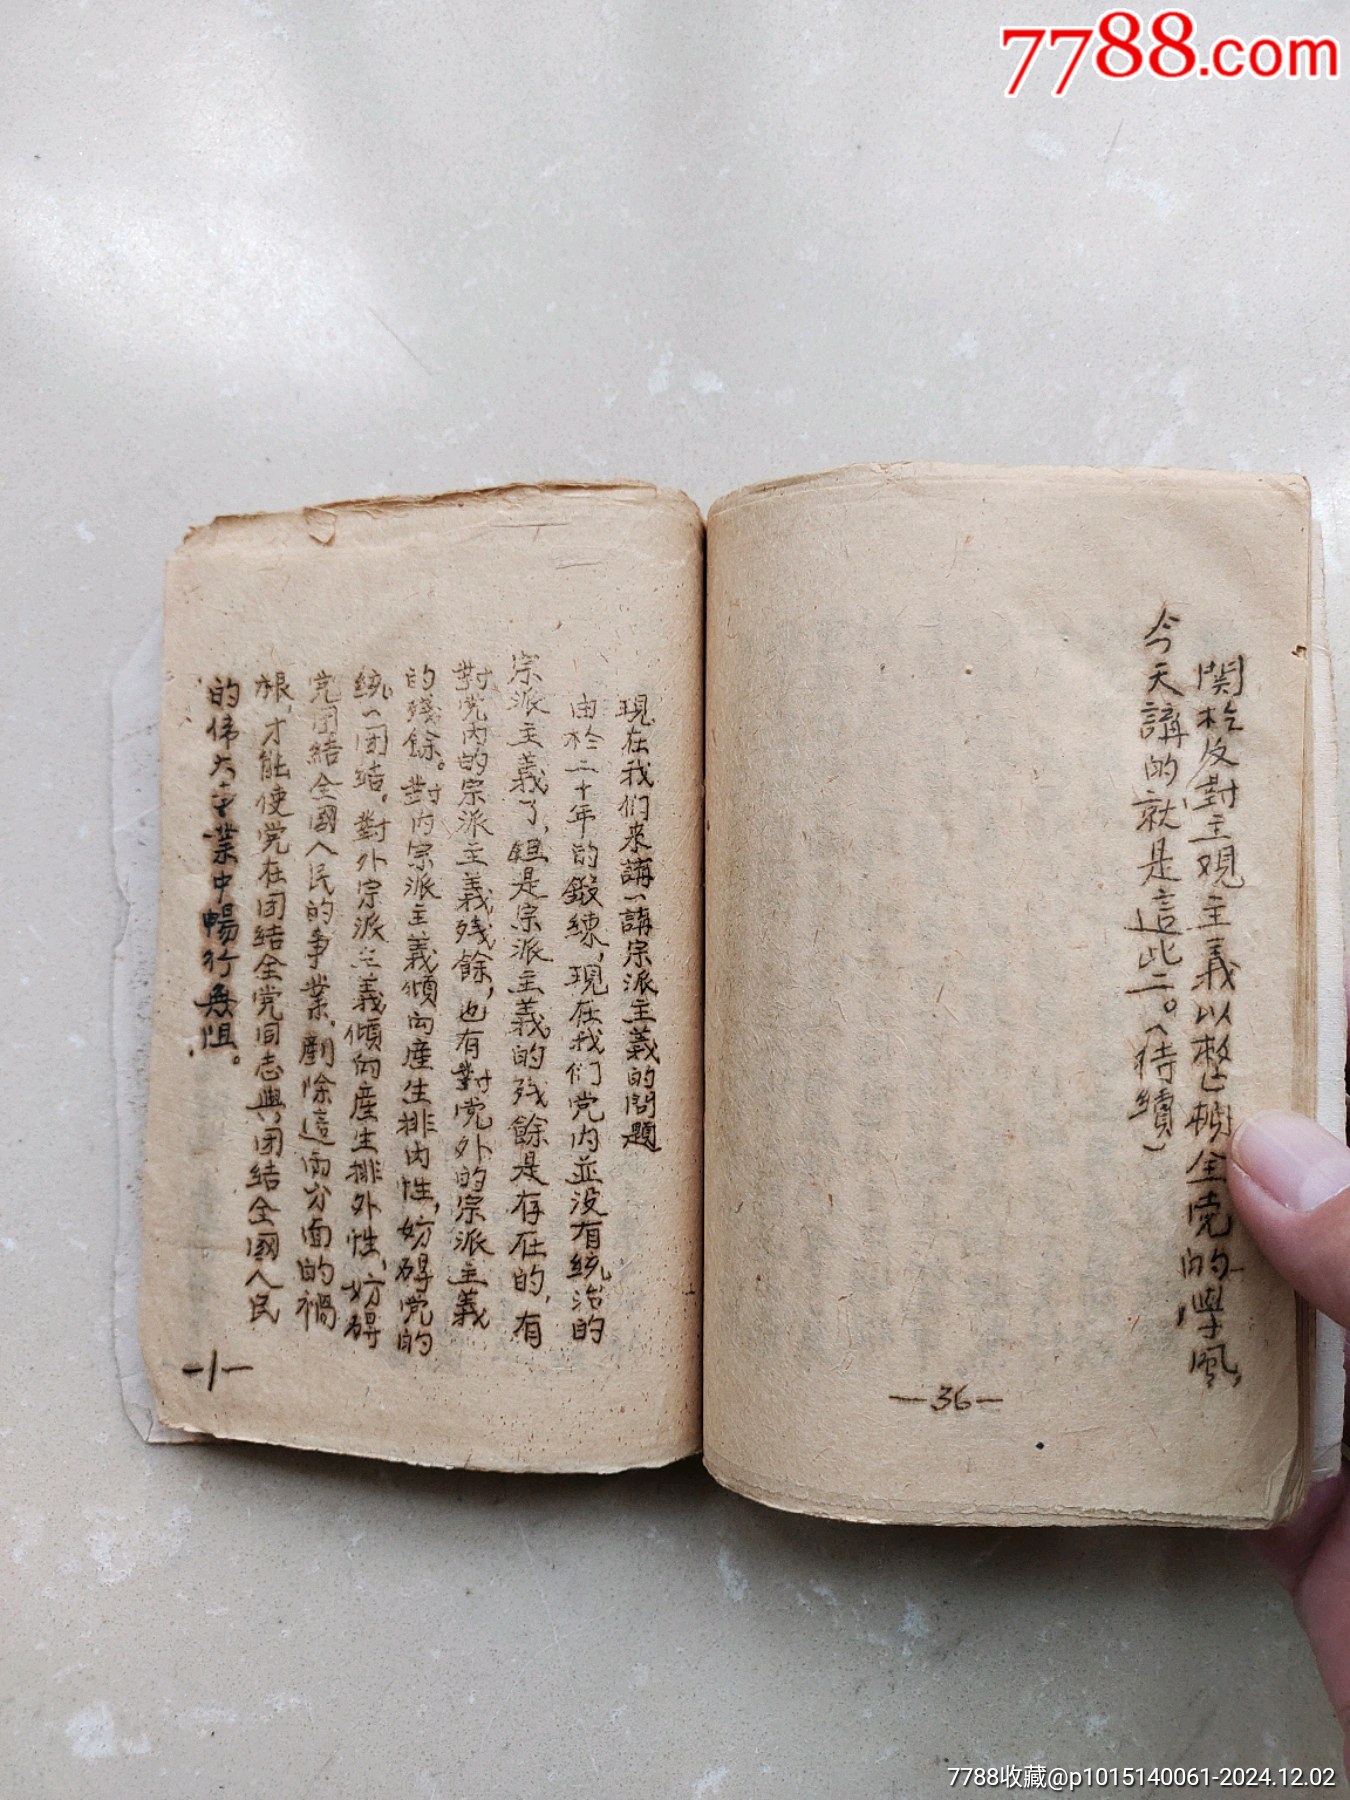 7788.com
関於反對主观主義以整頓全党的學風,
今天講的就是這些。(待續)
—36—
現在我们來講一講宗派主義的問題
由於二十年的鍛練,現在我们党內並没有統治的
宗派主義了,但是宗派主義的残餘是存在的,有
對党內的宗派主義残餘,也有對党外的宗派主義
的殘餘。對內宗派主義傾向產生排內性,妨碍党的
統一团结,對外宗派主義傾向產生排外性,妨碍
党团結全國人民的事業,剷除這両方面的禍
根,才能使党在团結全党同志與团結全國人民
的伟大事業中暢行無阻。
—1—
7788收藏@p1015140061-2024.12.02